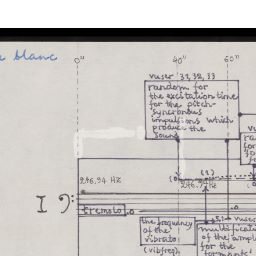 blanc
0" 40" 60"
vuser 31,32,33
random for
the excitation time
for the pitch-
syncronous
impulsions which
produce the
sound
246,94 Hz
(1)
I
tremolo
the frequency
of the
vibrato
(vibfreq)
vuser
multiplication
of the ampl
for the
formants